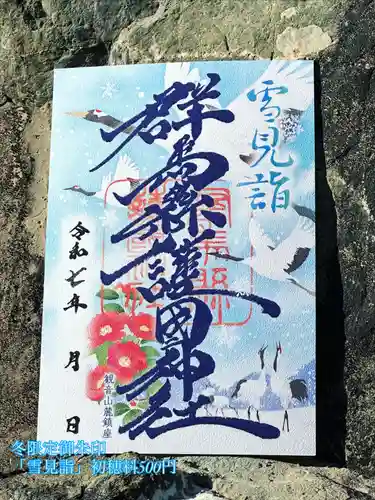 雪見詣
群馬縣護國神社
令和七年 月 日
観音山麓鎮座
冬限定御朱印
「雪見詣」初穂料500円